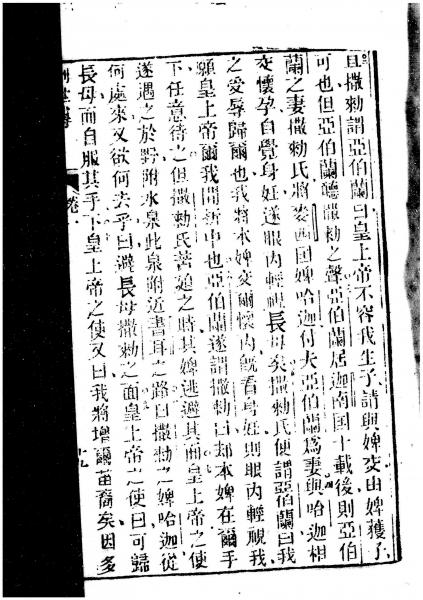 且撒勑謂亞伯蘭曰皇上帝不容我生子、請與婢交、由婢獲子
可也但亞伯蘭聽撒勑之聲亞伯蘭居迦南国十載後、則亞伯
蘭之妻撒勑氏將麥西國婢哈迦付夫亞伯蘭爲妻與哈迦相
交懷孕自覺身妊遂眼内輕視長母矣撒勑氏便謂亞伯蘭曰我
之受辱歸爾也我將本婢交爾懷内旣看身妊則眼内輕視我、
願皇上帝爾我間折中也亞伯蘭遂謂撒勑曰却本婢在爾手
下任意待之但撒勑氏苦迫之時其婢逃避其面皇上帝之使
遂遇之於野附水泉此泉附近書耳之路曰撒勑之婢哈迦從
何處來又欲何去乎曰避長母撒勑之面皇上帝之使曰可歸
長母而自服其手下皇上帝之使又曰我將增爾苗裔矣因多
卷一
十九